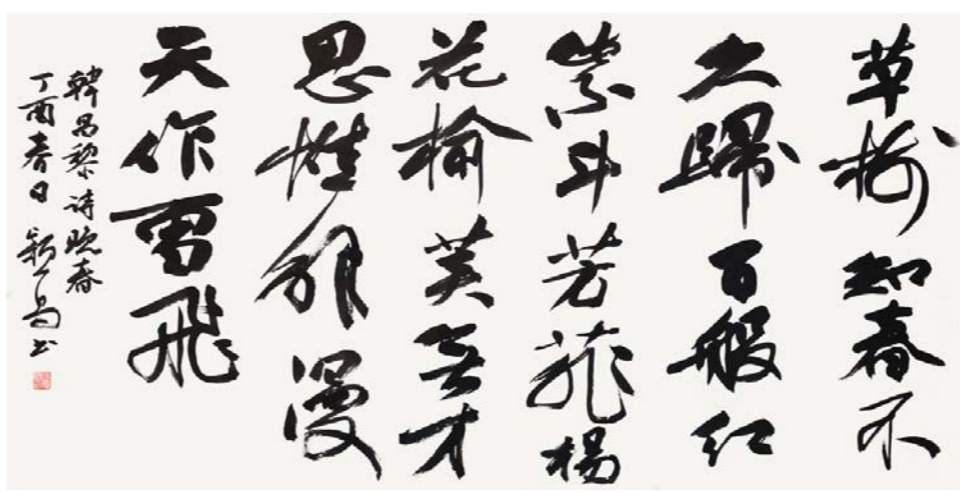 草樹知春不
久歸百般红
紫斗芳菲楊
花榆荚無才
思惟解漫
天作雪飛
韓昌黎诗晚春
丁酉春日书